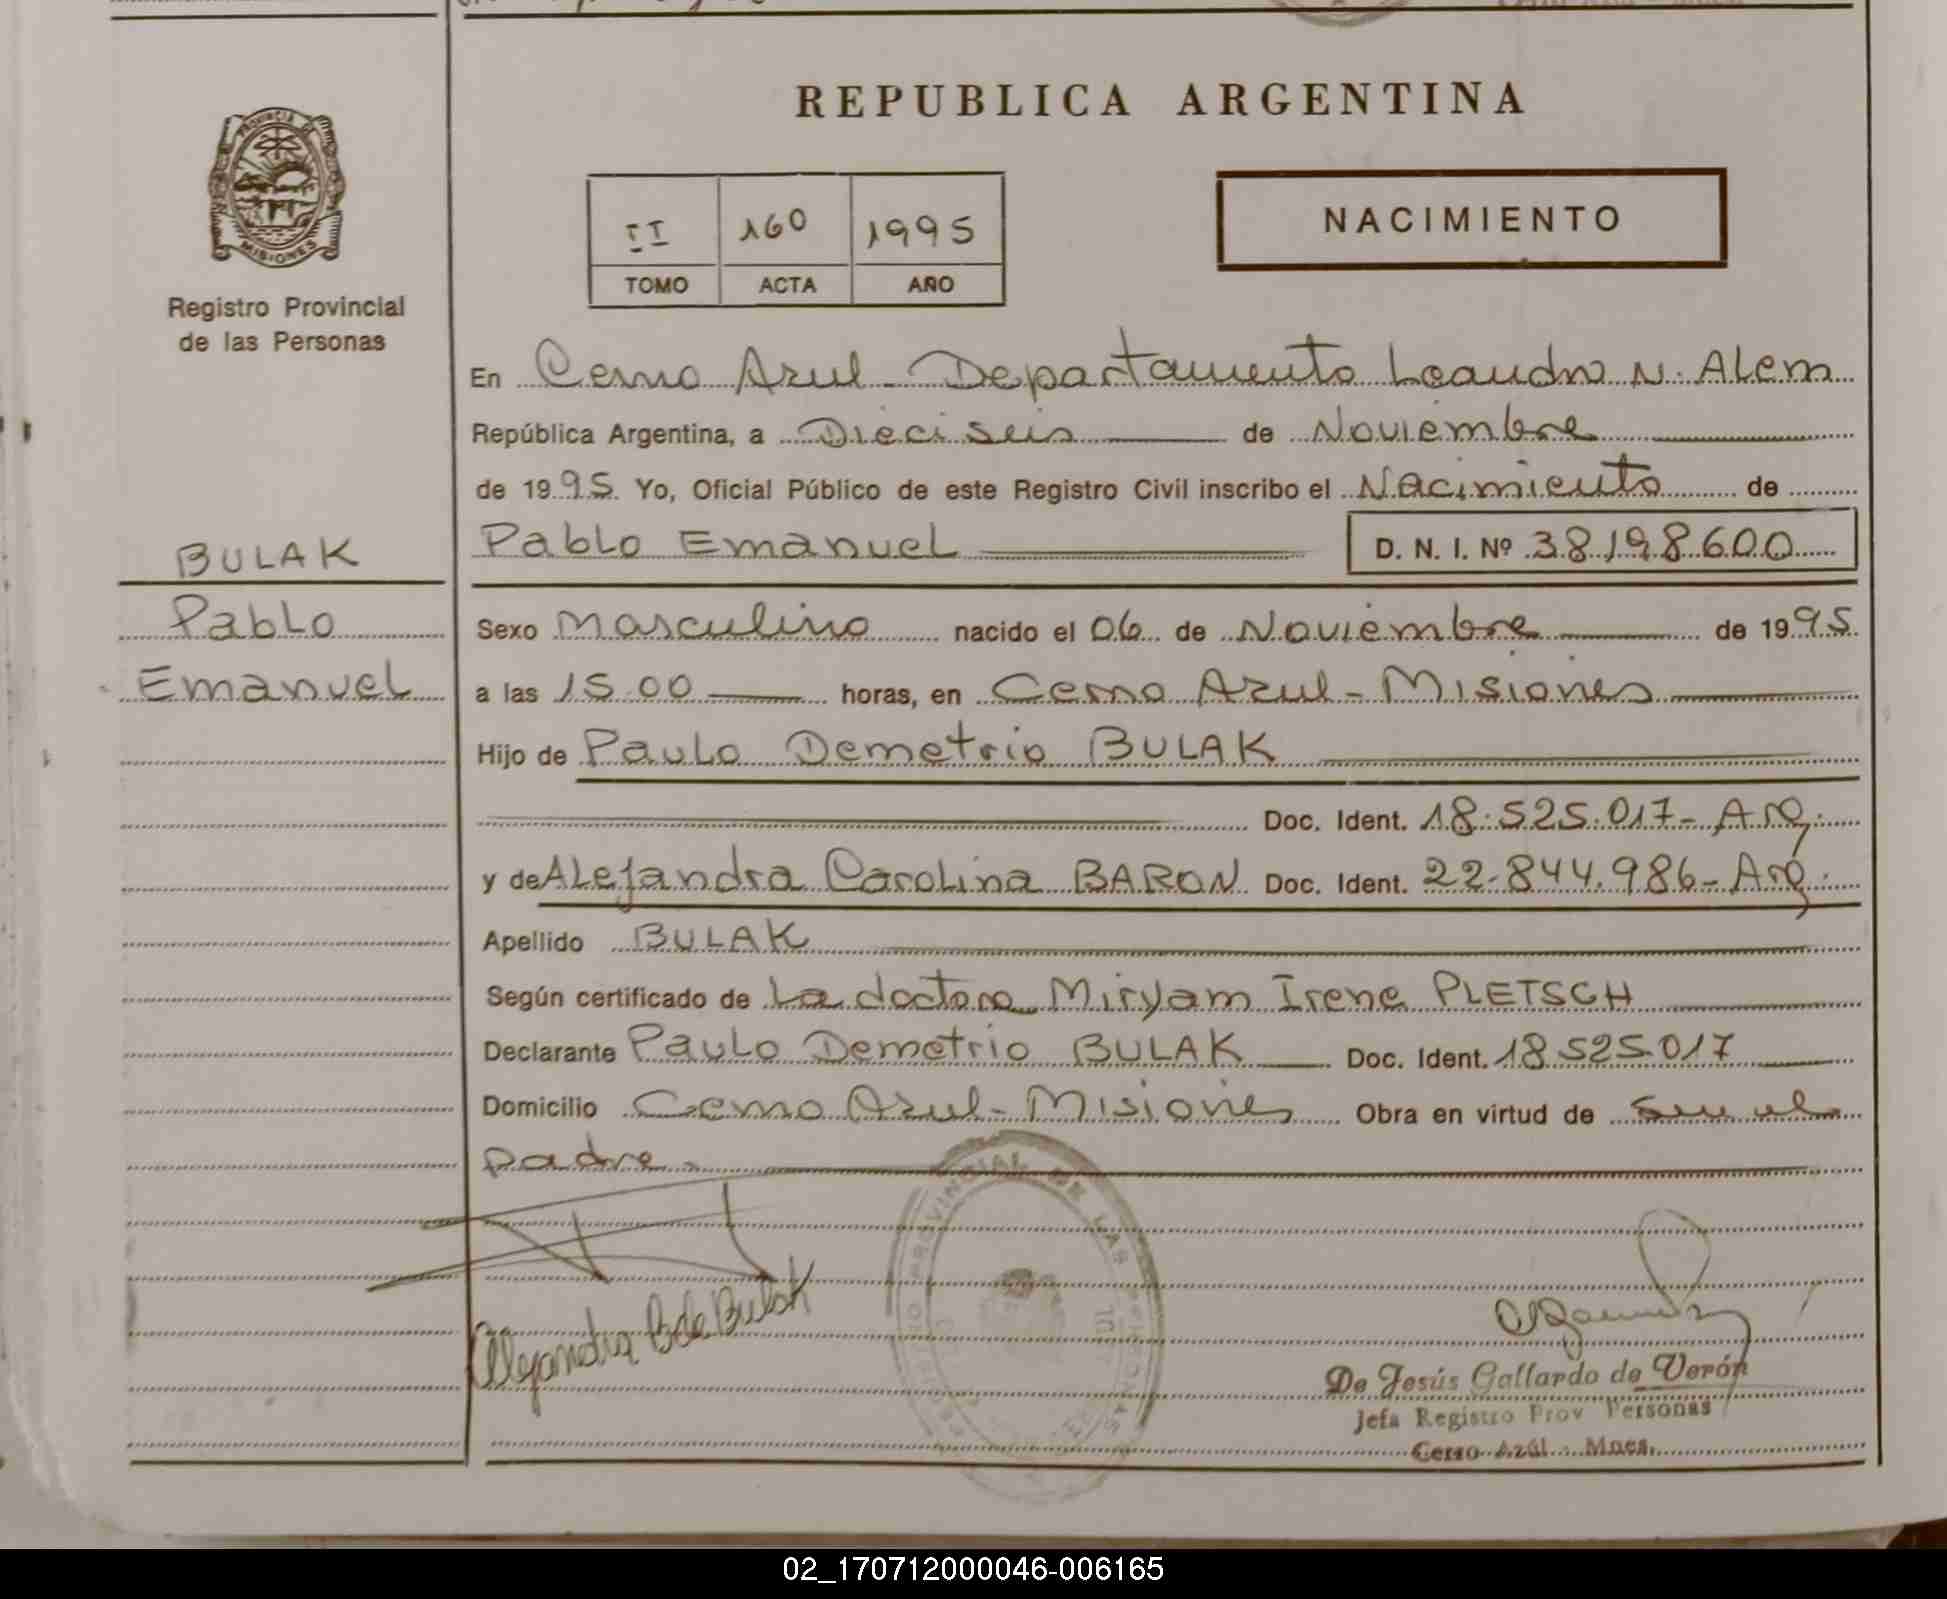 REPUBLICA ARGENTINA
PROVINCIA DE
MISIONES
Registro Provincial
de las Personas
II 160 1995
TOMO ACTA AÑO
NACIMIENTO
En Cerro Azul - Departamento Leandro N. Alem
República Argentina, a Dieciseis de Noviembre
de 1995. Yo, Oficial Público de este Registro Civil inscribo el Nacimiento de
Pablo Emanuel D. N. I. Nº 38198600
BULAK
Pablo
Emanuel
Sexo Masculino nacido el 06 de Noviembre de 1995
a las 15.00 horas, en Cerro Azul - Misiones
Hijo de Paulo Demetrio BULAK
Doc. Ident. 18.525.017 - Arg.
y de Alejandra Carolina BARON Doc. Ident. 22.844.986 - Arg.
Apellido BULAK
Según certificado de La doctora Miryam Irene PLETSCH
Declarante Paulo Demetrio BULAK Doc. Ident. 18.525.017
Domicilio Cerro Azul - Misiones Obra en virtud de ser el
padre.
Alejandra B de Bulak
REGISTRO PROVINCIAL DE LAS PERSONAS
De Jesús Gallardo de Verón
Jefa Registro Prov Personas
Cerro Azúl - Mnes.
02_170712000046-006165